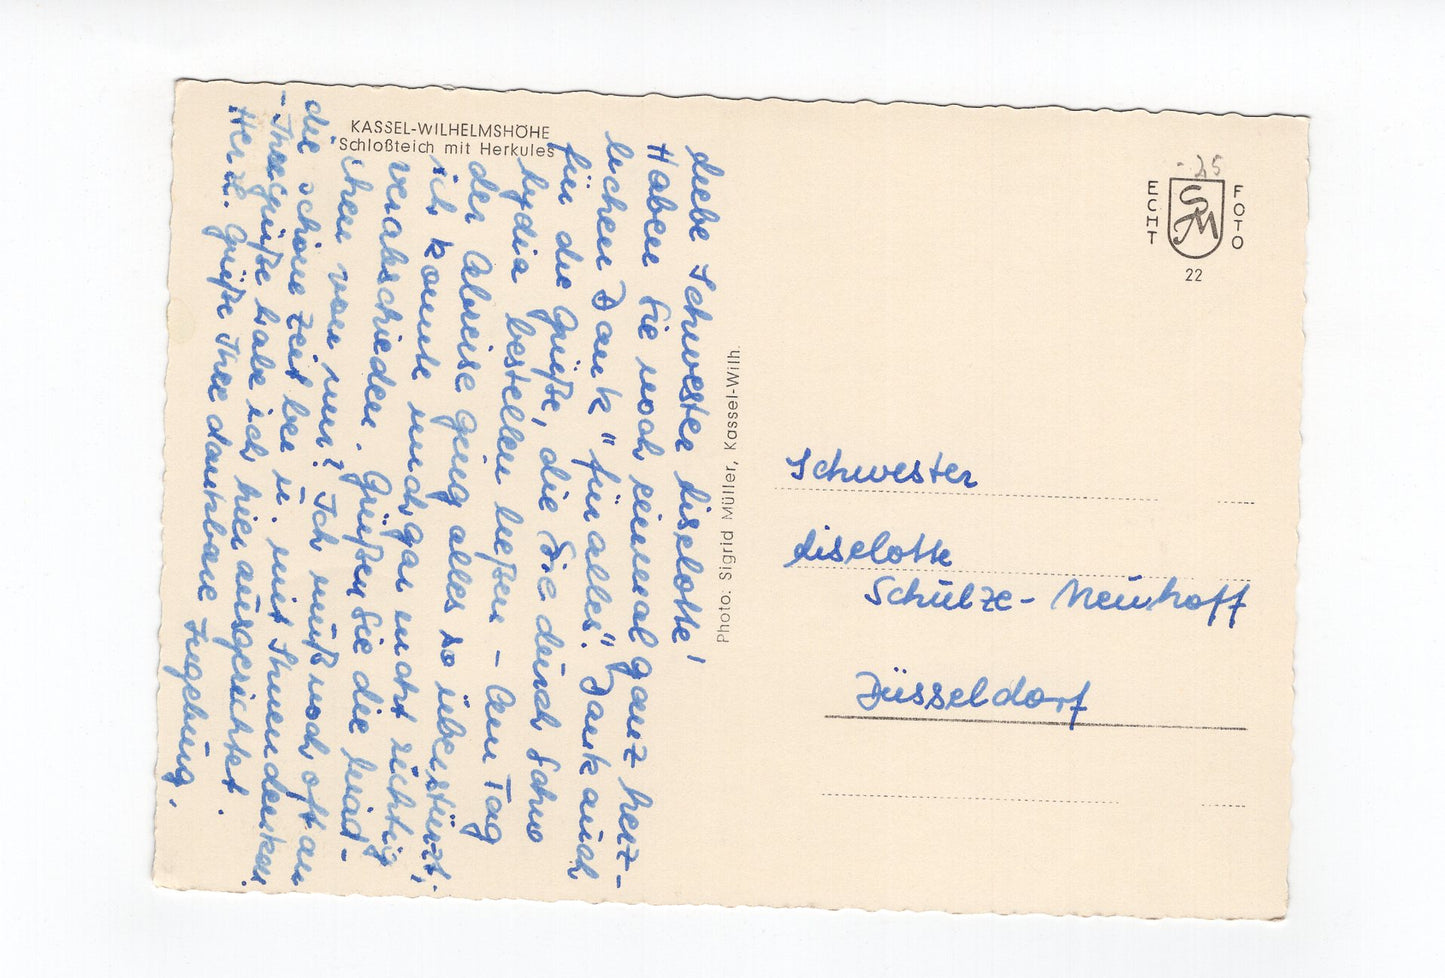 KASSEL-WILHELMSHÖHE
Schloßteich mit Herkules
Liebe Schwester Liselotte!
Haben Sie noch einmal ganz herz-
lichen Dank "für alles". Dank auch
für die Grüße, die Sie durch Schw
Lydia bestellen ließen - Am Tag
der Abreise ging alles so überstürzt,
ich konnte mich gar nicht richtig
verabschieden. Grüßen Sie die
chen von mir! Ich muß noch oft an
die schöne Zeit bei u. mit Ihnen denken.
- Ihre Grüße habe ich hier ausgerichtet.
Herzl. Grüße Ihre dankbare Ingeburg.
Photo. Sigrid Müller, Kassel-Wilh.
-25
ECHT
FOTO
SM
22
Schwester
Liselotte
Schulze-Neuhoff
Düsseldorf